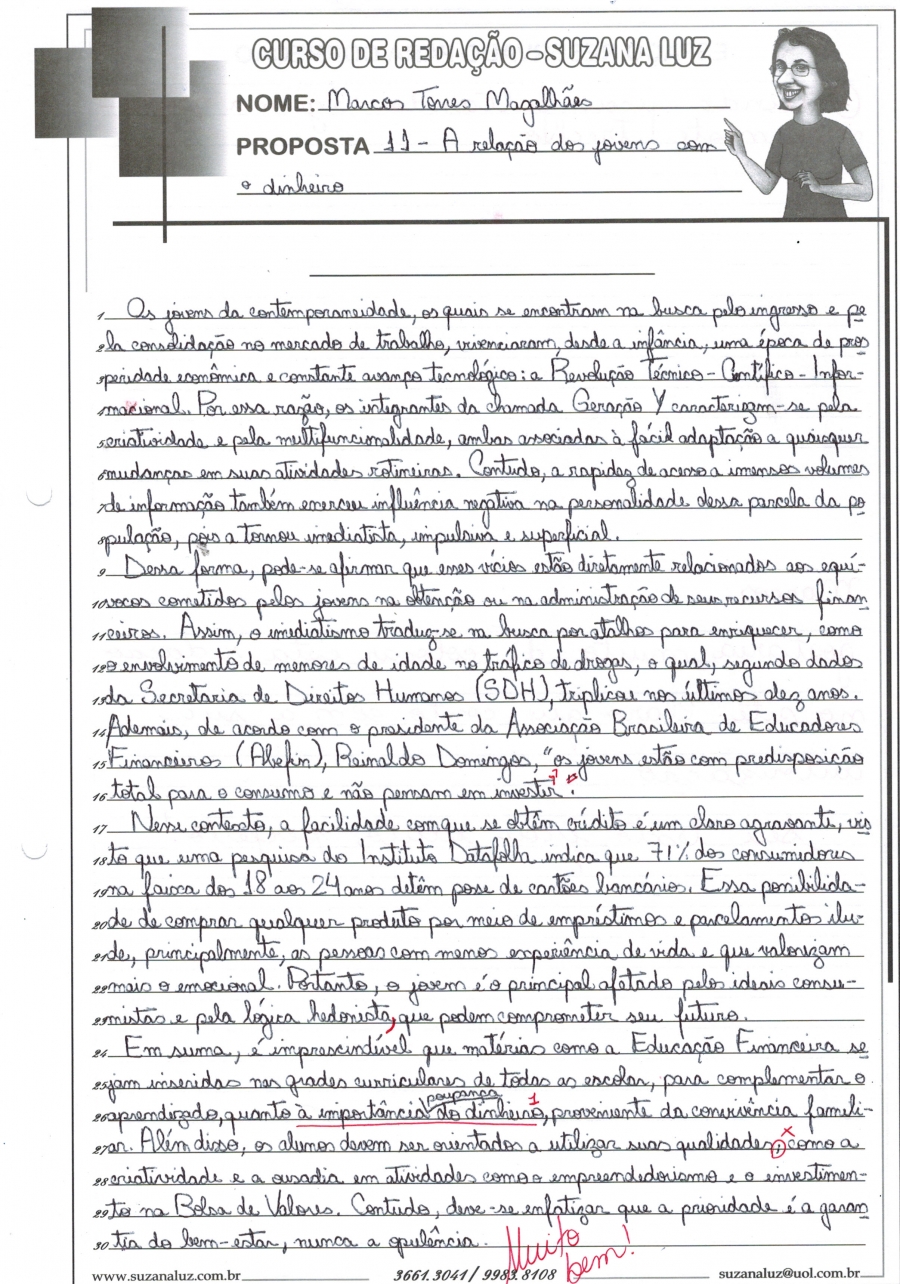 CURSO DE REDAÇÃO - SUZANA LUZ
NOME: Marcos Torres Magalhães
PROPOSTA 11 - A relação dos jovens com
o dinheiro
1 Os jovens da contemporaneidade, os quais se encontram na busca pelo ingresso e pe
2 la consolidação no mercado de trabalho, vivenciaram, desde a infância, uma época de pros
3 peridade econômica e constante avanço tecnológico: a Revolução Técnico-Científico-Infor-
4 macional. Por essa razão, os integrantes da chamada Geração Y caracterizam-se pela
5 criatividade e pela multifuncionalidade, ambas associadas à fácil adaptação a quaisquer
6 mudanças em suas atividades rotineiras. Contudo, a rapidez de acesso a imensos volumes
7 de informação também exerceu influência negativa na personalidade dessa parcela da po
8 pulação, pois a tornou imediatista, impulsiva e superficial.
9 Dessa forma, pode-se afirmar que esses vícios estão diretamente relacionados aos equí-
10 vocos cometidos pelos jovens na obtenção ou na administração de seus recursos finan
11 ceiros. Assim, o imediatismo traduz-se na busca por atalhos para enriquecer, como
12 o envolvimento de menores de idade no tráfico de drogas, o qual, segundo dados
13 da Secretaria de Direitos Humanos (SDH), triplicou nos últimos dez anos.
14 Ademais, de acordo com o presidente da Associação Brasileira de Educadores
15 Financeiros (Abefin), Reinaldo Domingos, "os jovens estão com predisposição
16 total para o consumo e não pensam em investir".
17 Nesse contexto, a facilidade com que se obtêm crédito é um claro agravante, vis
18 to que uma pesquisa do Instituto Datafolha indica que 71% dos consumidores
19 na faixa dos 18 aos 24 anos detêm posse de cartões bancários. Essa possibilida-
20 de de comprar qualquer produto por meio de empréstimos e parcelamentos ilu-
21 de, principalmente, as pessoas com menos experiência de vida e que valorizam
22 mais o emocional. Portanto, o jovem é o principal afetado pelos ideais consu-
23 mistas e pela lógica hedonista, que podem comprometer seu futuro.
24 Em suma, é imprescindível que matérias como a Educação Financeira se
25 jam inseridas nas grades curriculares de todas as escolas, para complementar o
poupança 1
26 aprendizado, quanto à importância do dinheiro, proveniente da convivência famili-
27 ar. Além disso, os alunos devem ser orientados a utilizar suas qualidades, como a
28 criatividade e a ousadia em atividades como o empreendedorismo e o investimen-
29 to na Bolsa de Valores. Contudo, deve-se enfatizar que a prioridade é a garan
30 tia do bem-estar, nunca a opulência. Muito
bem!
www.suzanaluz.com.br 3661.3041 / 9983.8108 suzanaluz@uol.com.br